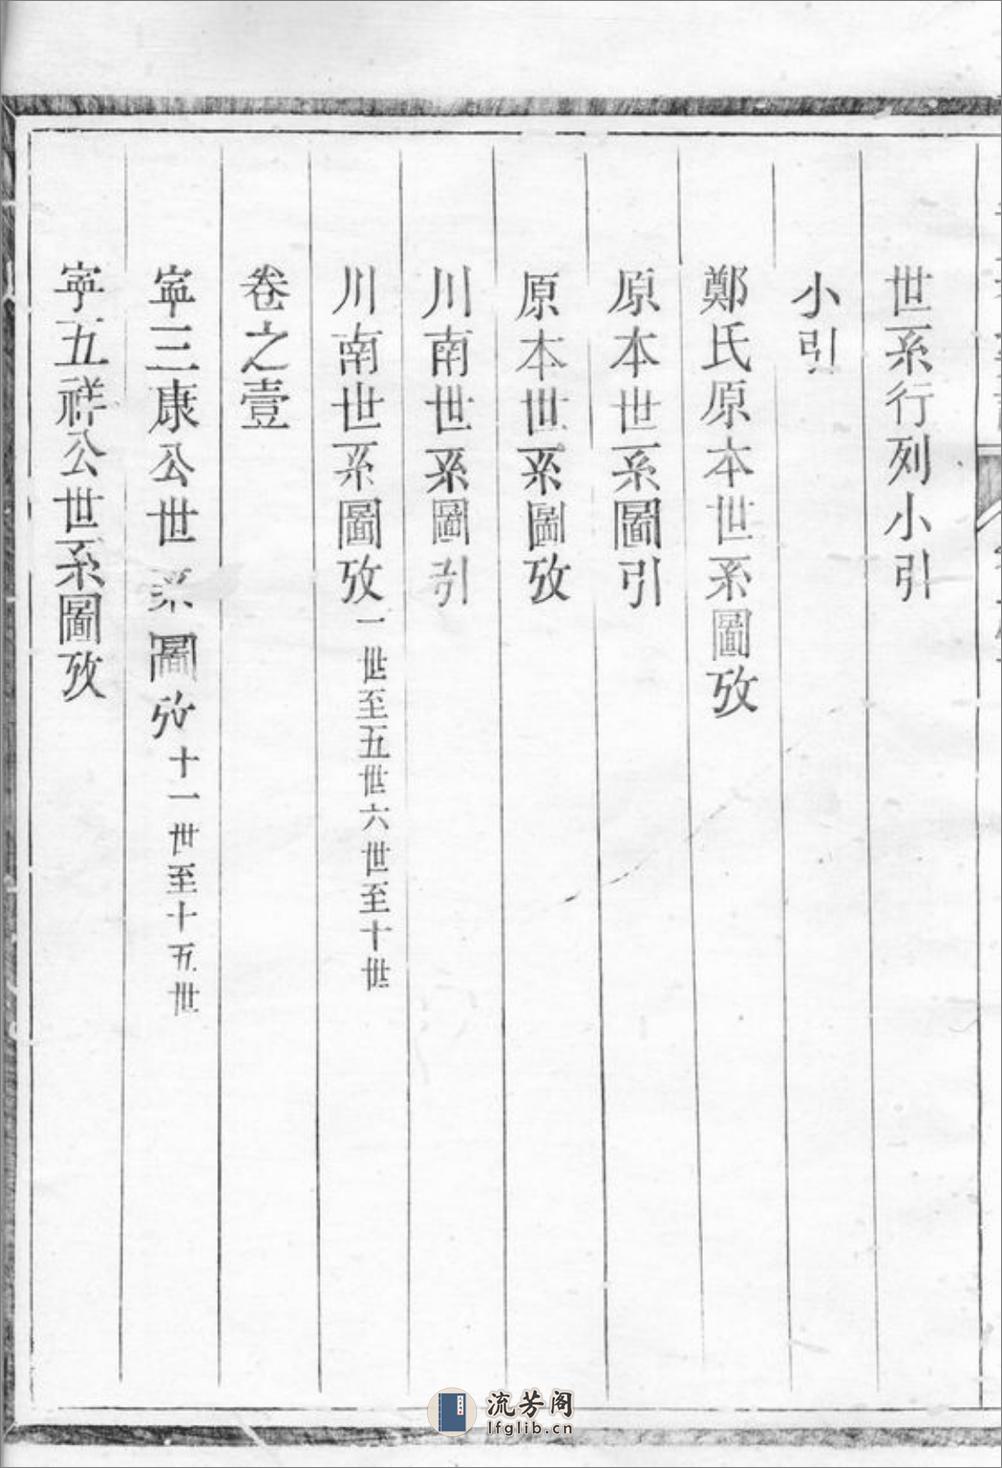 世系行列小引
小引
鄭氏原本世系圖攷
原本世系圖引
原本世系圖攷
川南世系圖引
川南世系圖攷一世至五世六世至十世
卷之壹
寍三康公世系圖攷十一世至十五世
寍五祥公世系圖攷
流芳阁
lfglib.cn